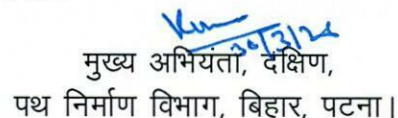 30/3/24
मुख्य अभियंता, दक्षिण,
पथ निर्माण विभाग, बिहार, पटना।